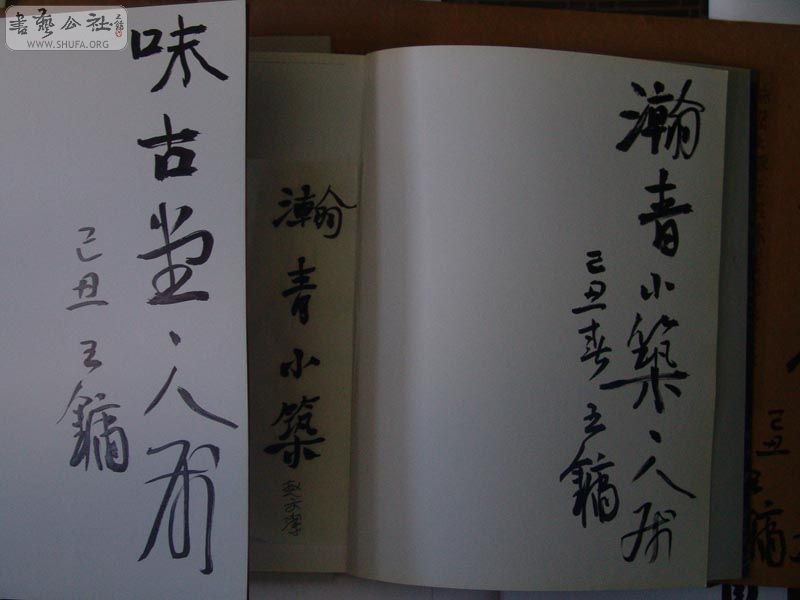 書藝公社
WWW.SHUFA.ORG
味古堂、人属
己丑 王鏞
瀚青小築
瀚青小築、人属
己丑春 王鏞
己丑